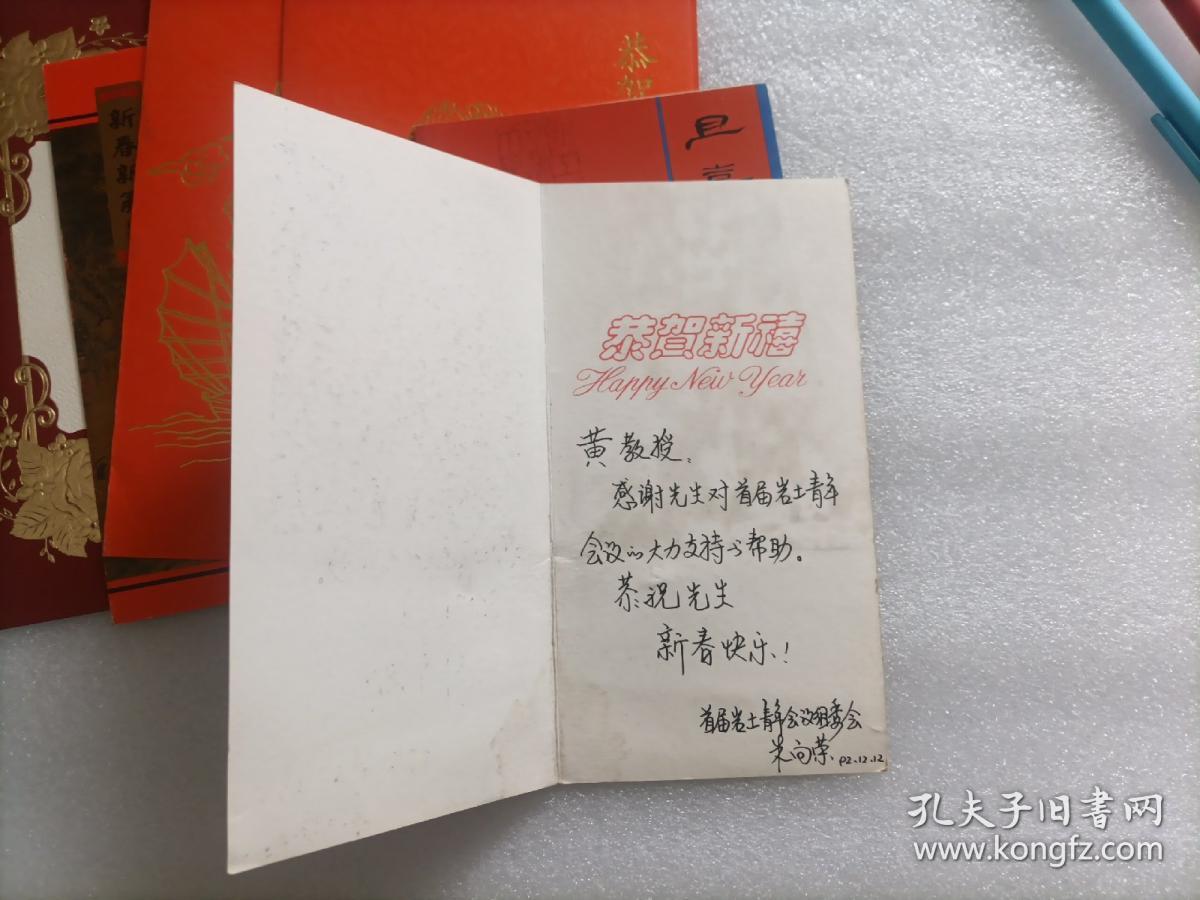 恭贺
新春新
且喜
恭贺新禧
Happy New Year
黄教授：
感谢先生对首届岩土青年
会议的大力支持与帮助。
恭祝先生
新春快乐！
首届岩土青年会议组委会
朱向荣 92.12.12
孔夫子旧书网
www.kongfz.com